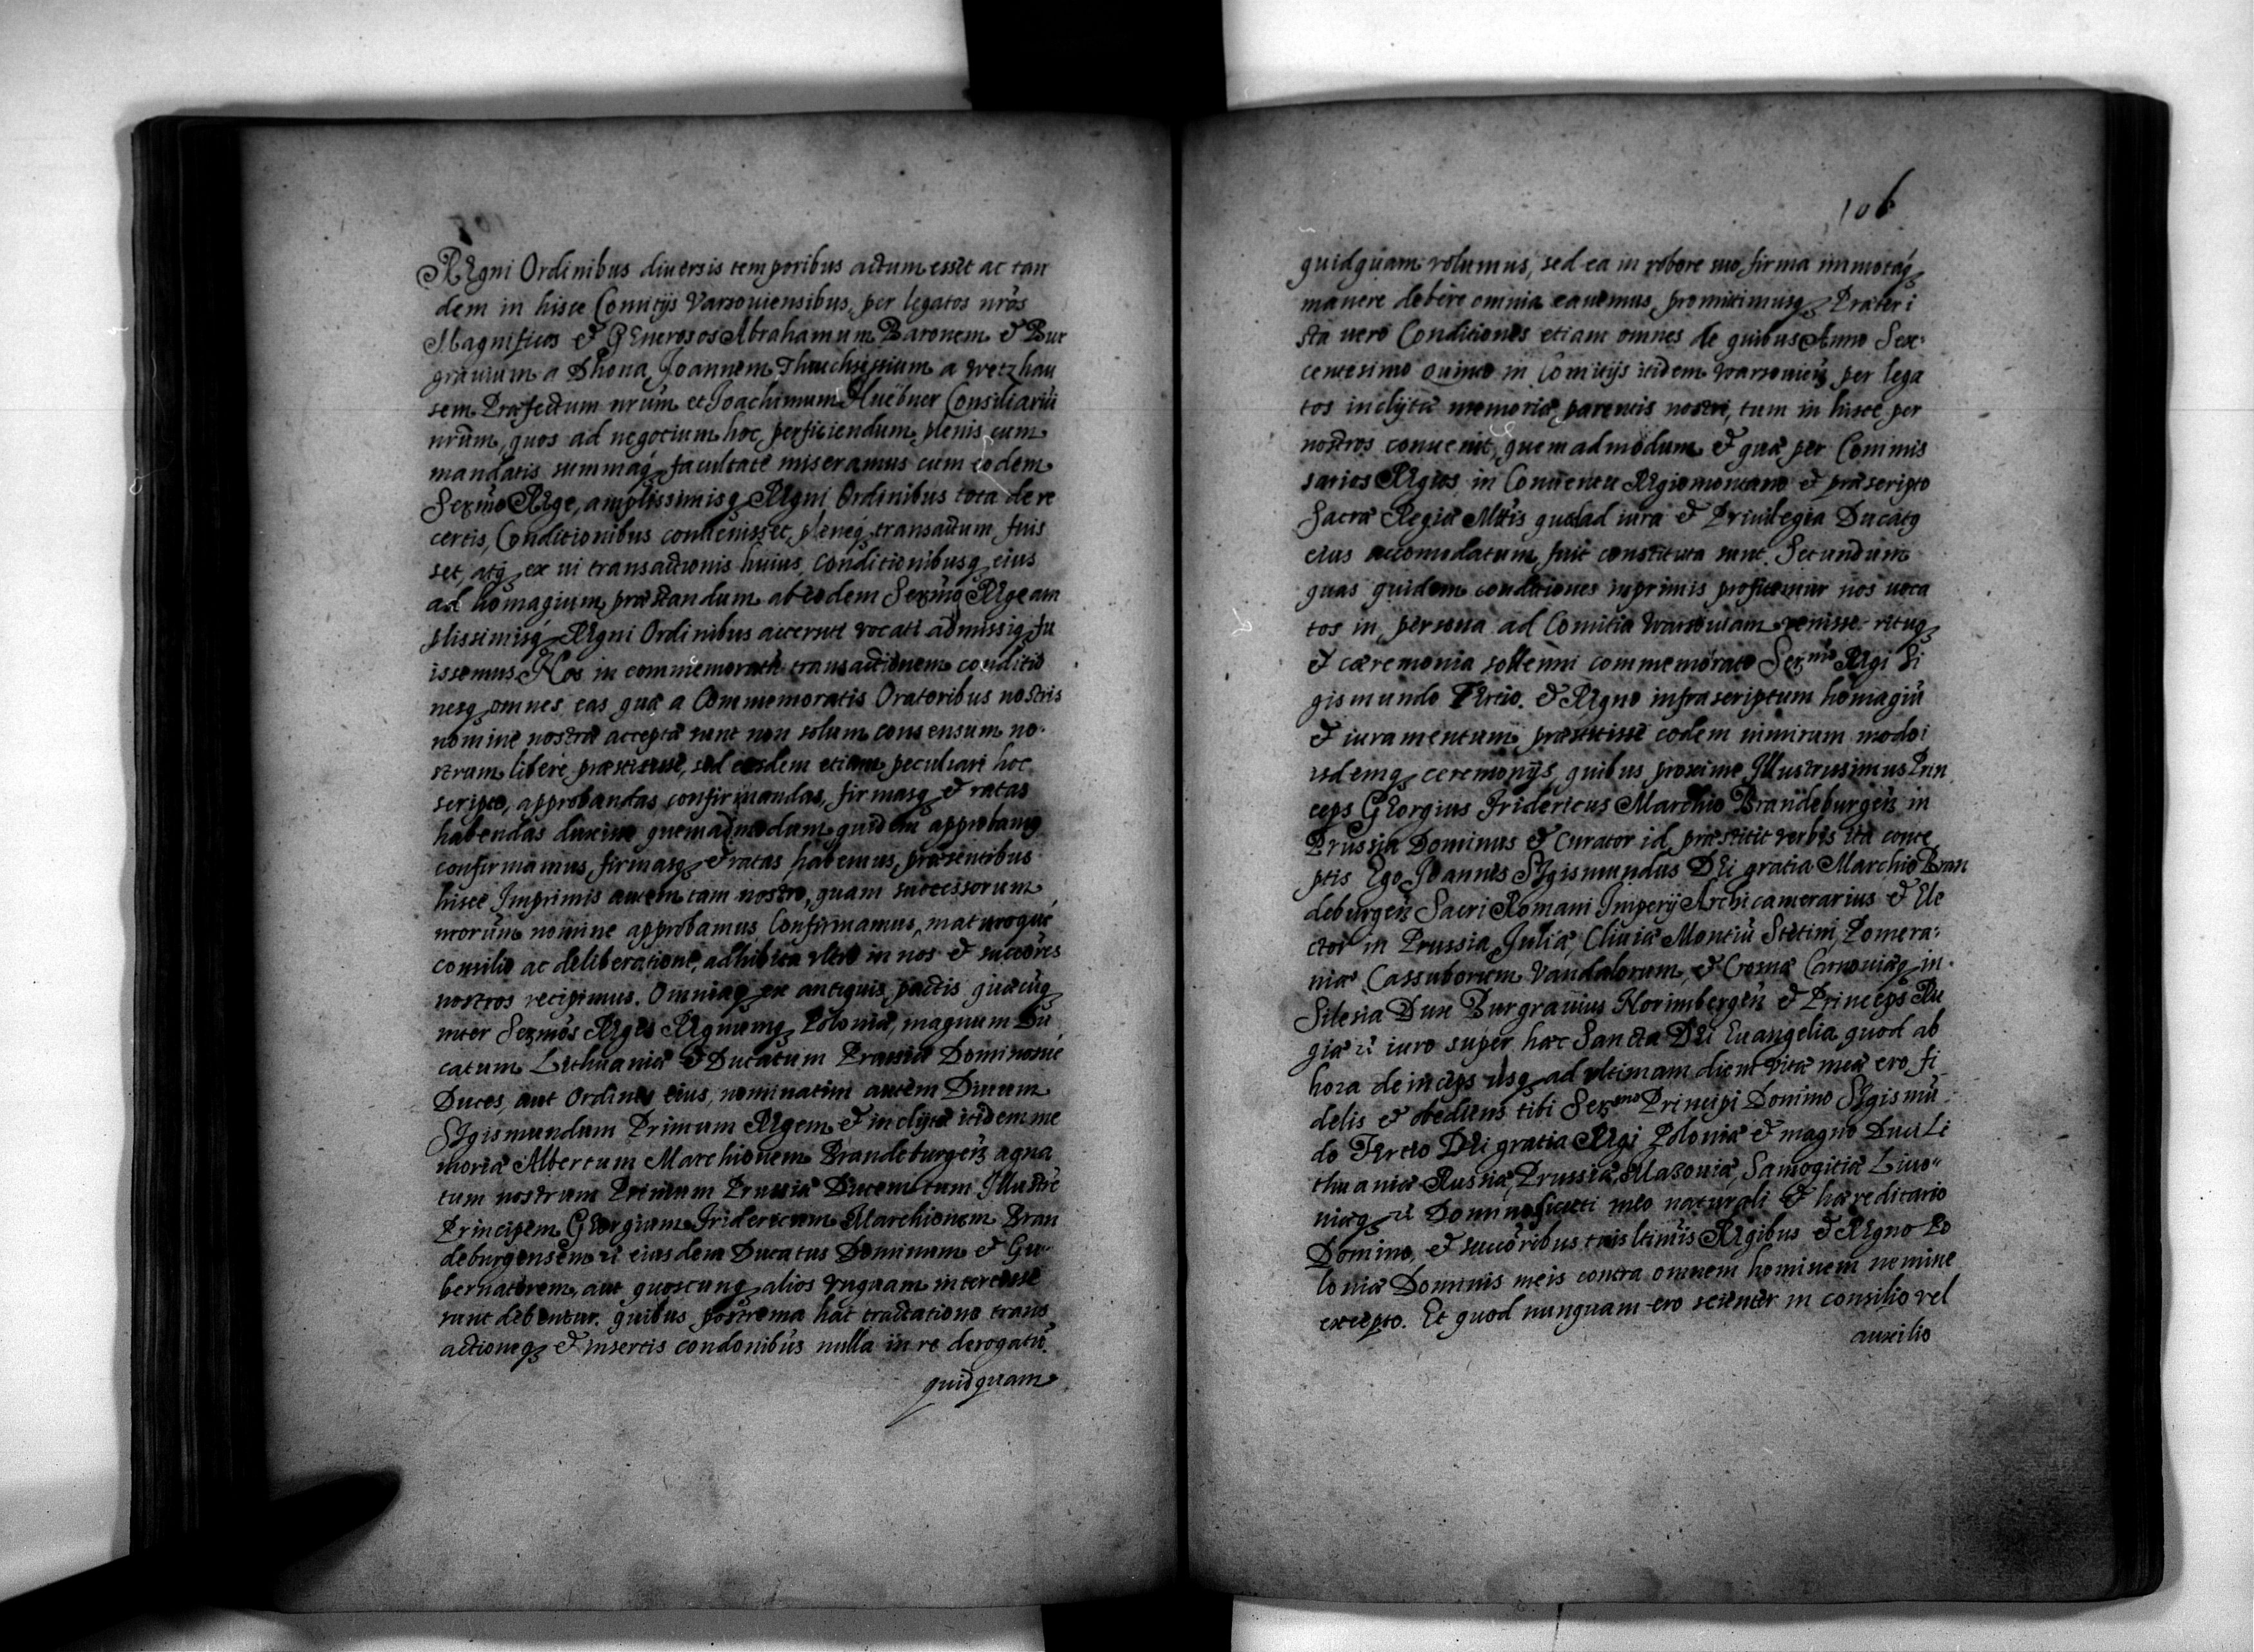 REgni Ordinibus diuersis temporibus actum esset ac tan
dem in hisce Comitijs Varsouiensibus, per legatos nrōs
Magnificos & GEnerosos Abrahamum Baronem & Bur
grauium a Dhona, Joannem Thruchsesium a Wetzhau
sem Præfectum nrūm et Joachimum Huëbner Consiliariū
nrūm, quos ad negotium hoc perficiendum plenis cum
mandatis summaq facultate miseramus cum eodem
Sermō REge, amplissimisq REgni Ordinibus tota de re
certis, Conditionibus conuenisset, pleneq transactum fuis
set, atq ex ui transactionis huius, Conditionibusq eius
ad homagium præstandum ab eodem Sermō REge am
plissimisq REgni Ordinibus accersiti vocati admissiq fu
issemus. Nos in commemoratā transactionem conditio
nesq omnes eas quæ a Commemoratis Oratoribus nostris
nomine nostro acceptæ sunt non solum consensum no-
strum libere præstitisse, sed easdem etiam peculiari hoc
scripto, approbandas confirmandas, firmasq & ratas
habendas duximus quemadmodum quidem approbamus
confirmamus, firmasq & ratas habemus, præsentibus
hisce Imprimis autem tam nostro, quam successorum
nrorum nomine approbamus Confirmamus, maturoque
consilio ac deliberatione, adhibita vltro in nos & succōres
nostros recipimus. Omniaq ex antiquis pactis quæcuq
inter Sermōs REges REgnumq Poloniæ, magnum Du
catum Lithuaniæ & Ducatum Prussiæ Dominosue
Duces, aut Ordines eius, nominatim autem Diuum
SIgismundum Primum REgem & inclytæ itidem me
moriæ Albertum Marchionem Brandeburgeñ agna
tum nostrum Primum Prussiæ Ducem tum Illustre
Principem GEorgium Fridericum Marchionem Bran
deburgensem &c eiusdem Ducatus Dominum & Gu-
bernatorem, aut quoscunq alios vnquam intercesse
runt debentur. quibus postrema hac tractatione trans
actioneq & insertis condonibus nulla in re derogatū
quidquam
106
quidquam volumus, sed ea in robore suo firma immotaq
manere debere omnia cauemus, promittimusq Præter i
sta vero Conditiones etiam omnes de quibus Anno Sex-
centesimo quinto in Comitijs itidem Warsouieñ per lega
tos inclytæ memoriæ, parentis nostri, tum in hisce per
nostros conuenit, quemadmodum & quæ per Commis
sarios REgios in Conuentu REgiomontano & præscripto
Sacræ Regiæ Mttis quoad iura & Priuilegia Ducatq
eius accomodatum fuit constituta sunt. Secundum
quas quidem conditiones inprimis profitemur nos voca
tos in persona ad Comitia Warsouiam venisse rituq
& cæremonia sollenni commemorato Sermo REgi Si
gismundo TErtio. & REgno infrascriptum homagiū
& iuramentum præstitisse eodem nimirum modo i
isdemq ceremonijs, quibus proxime Illustrissimus Prin
ceps GEorgius Fridericus Marchio Brandeburgeñ in
Prussia Dominus & Curator id præstitit verbis ita conce
ptis Ego Joannes SIgismundus DEi gratia Marchio Bran
deburgeñ Sacri Romani Imperij Archicamerarius & Ele
ctor in Prussia, Juliæ, Cliuiæ Montiū Stetini, Pomera-
niæ Cassuborum Vandalorum, & Crosnæ Carnouiæq in
Silesia Dux Burgrauius Norimbergeñ & Princeps Ru
giæ &c iuro super hæc Sancta DEi Euangelia quod ab
hora deinceps usq ad vltimam diem vitæ meæ ero fi
delis & obediens tibi Sermo Principi Domino SIgismū
do TErtio DEi gratia REgi Poloniæ & magno Duci Li
thuaniæ Russiæ, Prussiæ, Masouiæ, Samogitiæ Liuo-
niæq &c Domino sicuti meo naturali & hæreditario
Domino, & succōribus tuis ltimis REgibus & REgno Po
loniæ Dominis meis contra omnem hominem nemine
excepto. Et quod nunquam ero scienter in consilio vel
auxilio